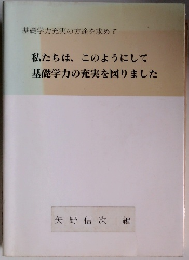 基礎学力充実の方途を求めて
私たちは、このようにして
基礎学力の充実を図りました
矢野 信次 編